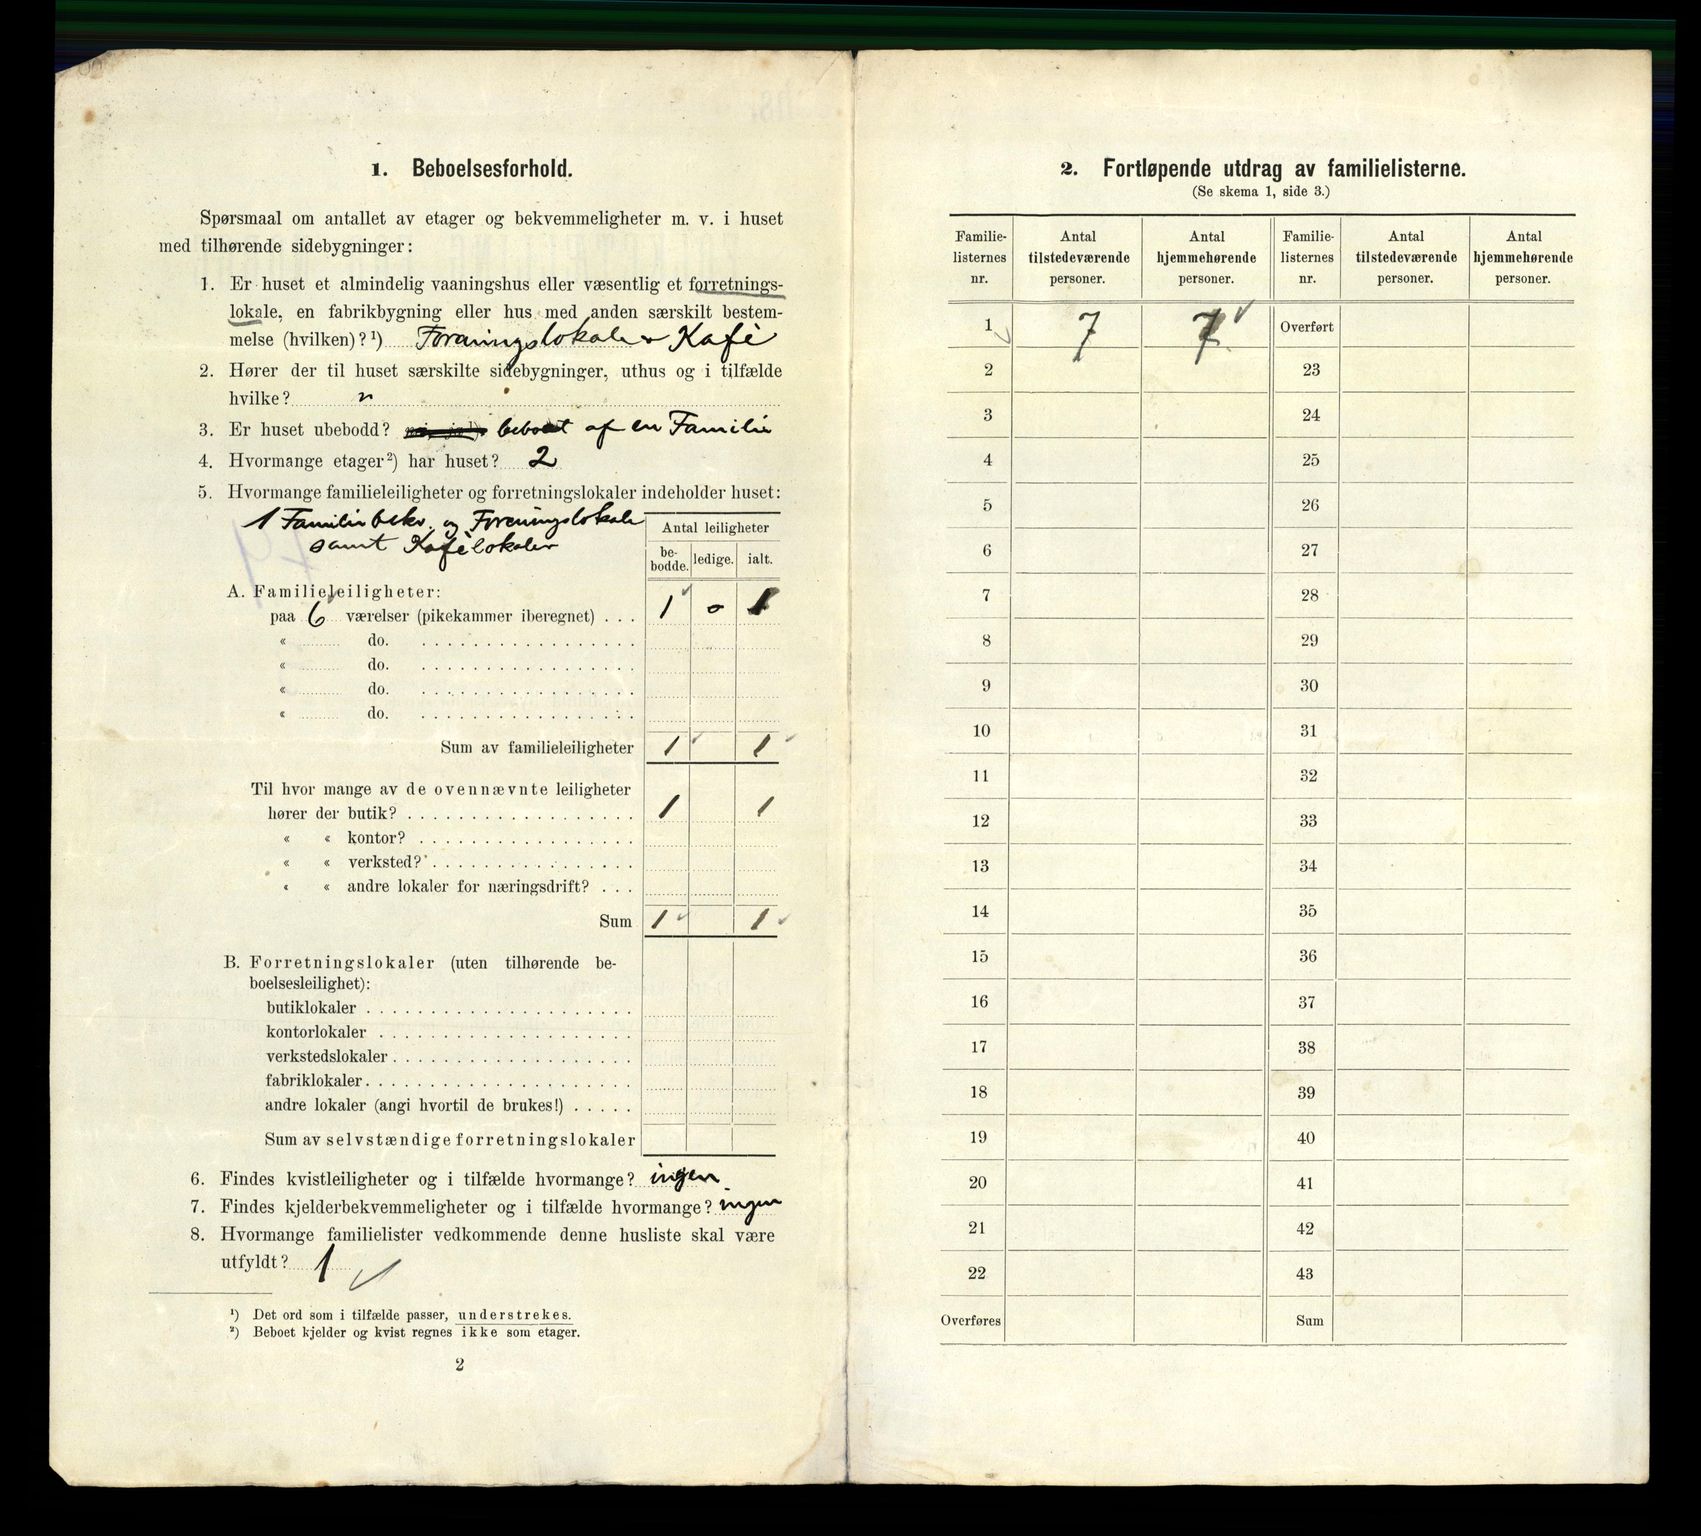 1. Beboelsesforhold.
Spørsmaal om antallet av etager og bekvemmeligheter m. v. i huset
med tilhørende sidebygninger:
1. Er huset et almindelig vaaningshus eller væsentlig et forretnings-
lokale, en fabrikbygning eller hus med anden særskilt bestem-
melse (hvilken)?¹) Foreningslokale & Kafé
2. Hører der til huset særskilte sidebygninger, uthus og i tilfælde
hvilke? "
3. Er huset ubebodd? beboet af en Familie
4. Hvormange etager²) har huset? 2
5. Hvormange familieleiligheter og forretningslokaler indeholder huset:
1 Familiebekv. og Foreningslokale
samt Kafélokaler
Antal leiligheter
be-
bodde. ledige. ialt.
A. Familieleiligheter:
paa 6 værelser (pikekammer iberegnet) . . . 1 0 1
« do.
« do.
« do.
« do.
Sum av familieleiligheter 1 1
Til hvor mange av de ovennævnte leiligheter
hører der butik? 1 1
« « kontor?
« « verksted?
« « andre lokaler for næringsdrift?
Sum 1 1
B. Forretningslokaler (uten tilhørende be-
boelsesleilighet):
butiklokaler
kontorlokaler
verkstedslokaler
fabriklokaler
andre lokaler (angi hvortil de brukes!)
Sum av selvstændige forretningslokaler
6. Findes kvistleiligheter og i tilfælde hvormange? ingen
7. Findes kjelderbekvemmeligheter og i tilfælde hvormange? ingen
8. Hvormange familielister vedkommende denne husliste skal være
utfyldt? 1
¹) Det ord som i tilfælde passer, understrekes.
²) Beboet kjelder og kvist regnes ikke som etager.
2
2. Fortløpende utdrag av familielisterne.
(Se skema 1, side 3.)
Familie- Antal Antal Familie- Antal Antal
listernes tilstedeværende hjemmehørende listernes tilstedeværende hjemmehørende
nr. personer. personer. nr. personer. personer.
1 7 7 Overført
2 23
3 24
4 25
5 26
6 27
7 28
8 29
9 30
10 31
11 32
12 33
13 34
14 35
15 36
16 37
17 38
18 39
19 40
20 41
21 42
22 43
Overføres Sum